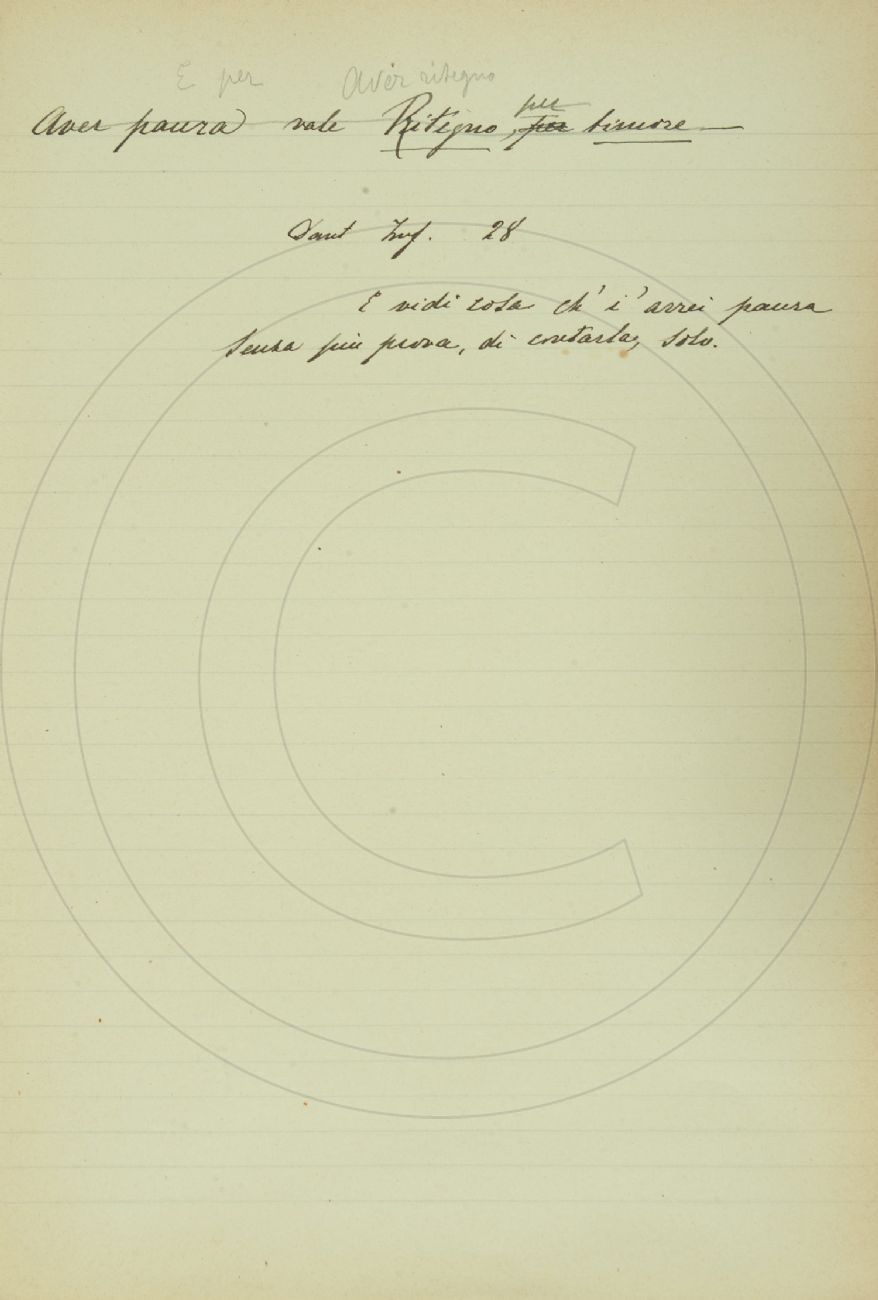 E per Aver ritegno
Aver paura vale Ritegno, per per timore —
Dant Inf. 28
E vidi cosa ch' i' avrei paura
Senza più prova, di contarla, solo.